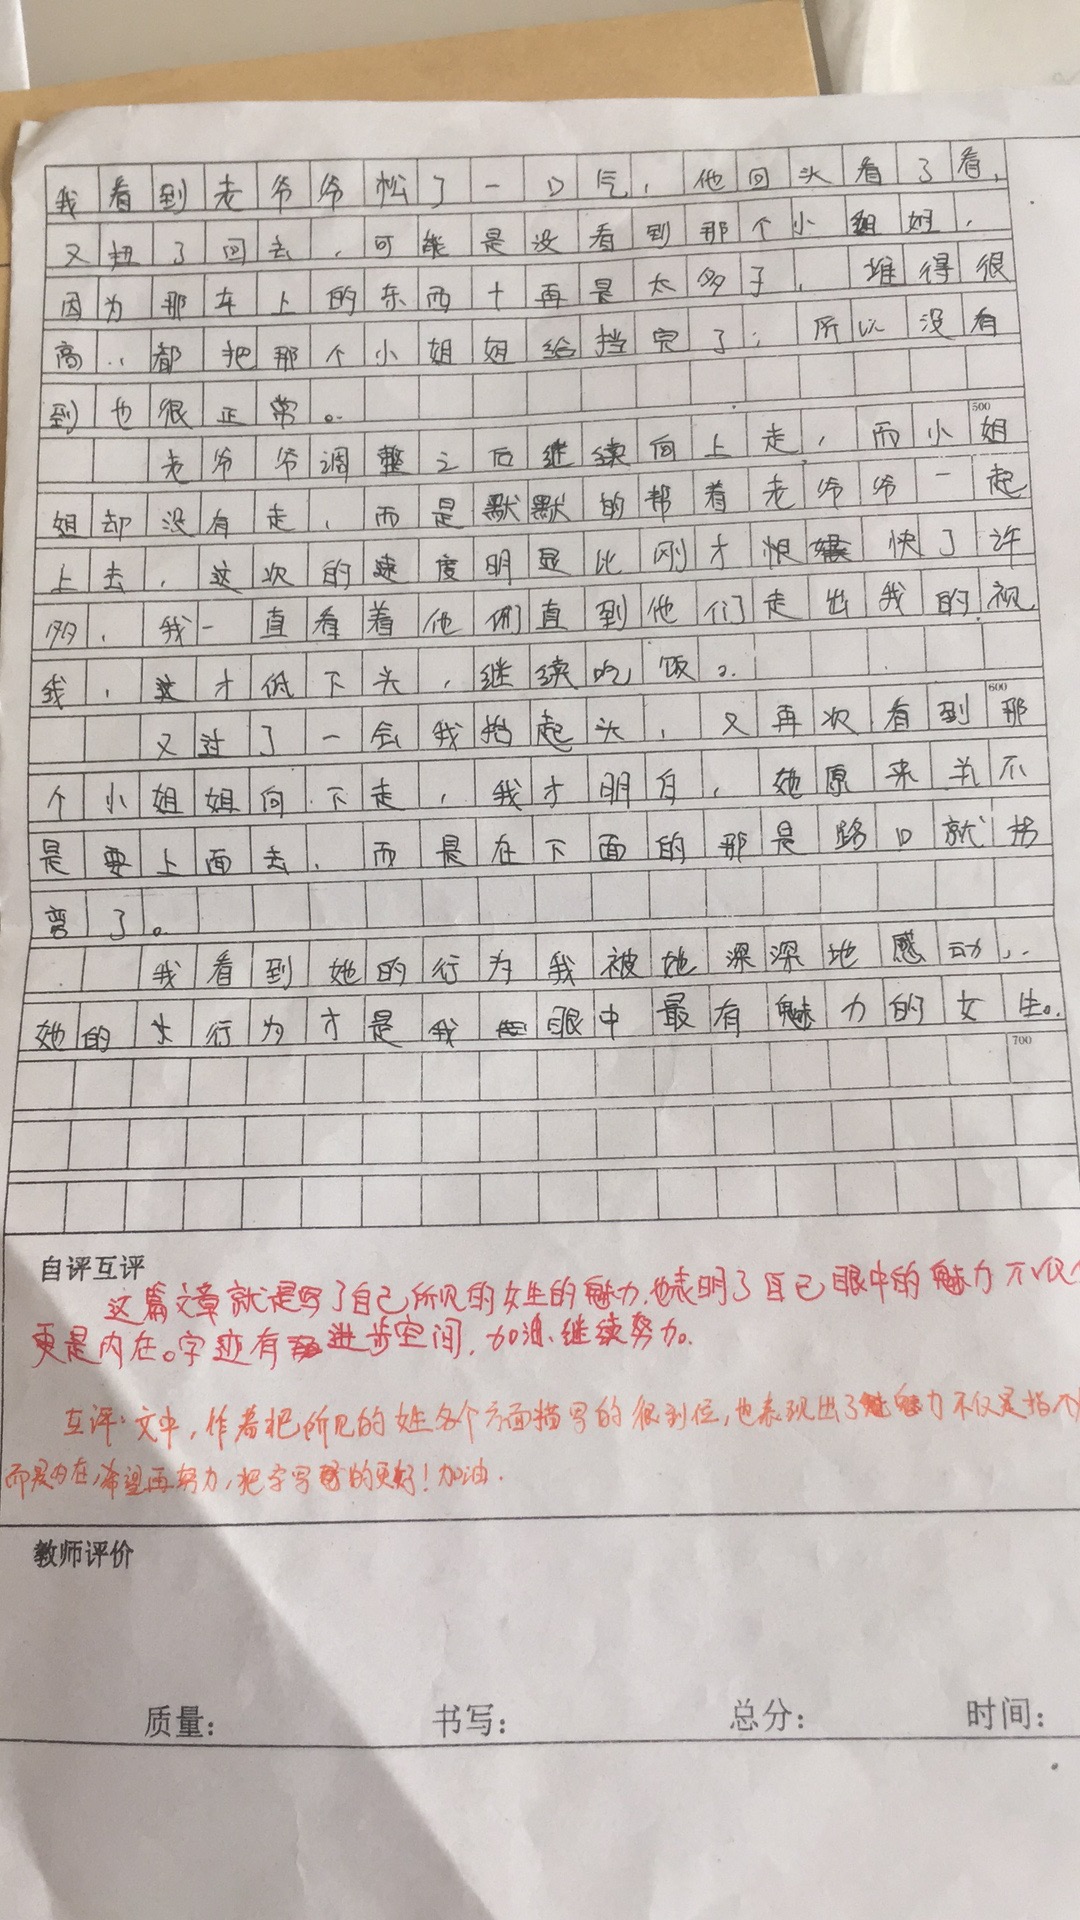 我看到老爷爷松了一口气，他回头看了看，
又扭了回去，可能是没看到那个小姐姐，
因为那车上的东西十再是太多了，堆得很
高，都把那个小姐姐给挡完了；所以没有
到也很正常。
500
老爷爷调整之后继续向上走，而小姐
姐却没有走，而是默默的帮着老爷爷一起
上去，这次的速度明显比刚才快了许
多，我一直看着他们直到他们走出我的视
线，这才低下头，继续吃饭。
600
又过了一会我抬起头，又再次看到那
个小姐姐向下走，我才明白，她原来并不
是要上面去，而是在下面的那是路口就拐
弯了。
我看到她的行为我被她深深地感动，
她的行为才是我眼中最有魅力的女生。
700
自评互评
这篇文章就是写了自己所见的女生的魅力，也表明了自己眼中的魅力不仅
更是内在。字迹有进步空间，加油、继续努力。
互评：文中，作者把所见的姓各个方面描写的很到位，也表现出了魅力不仅是指
而是内在，希望再努力，把字写的更好！加油．
教师评价
质量： 书写： 总分： 时间：